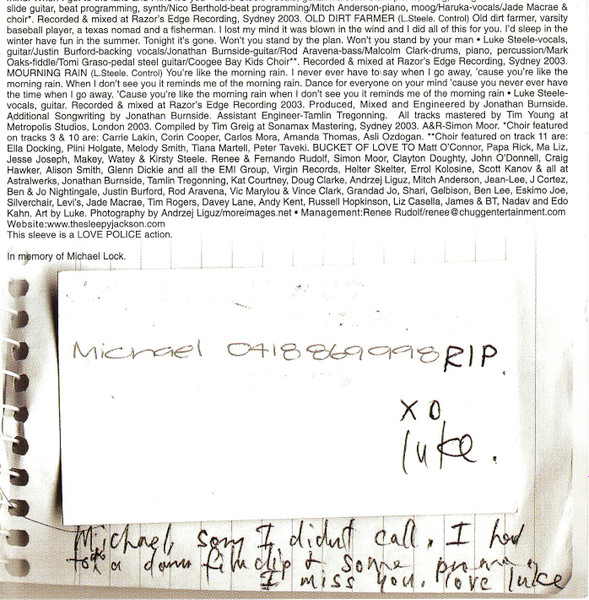 slide guitar, beat programming, synth/Nico Berthold-beat programming/Mitch Anderson-piano, moog/Haruka-vocals/Jade Macrae &
choir*. Recorded & mixed at Razor's Edge Recording, Sydney 2003. OLD DIRT FARMER (L.Steele. Control) Old dirt farmer, varsity
baseball player, a texas nomad and a fisherman. I lost my mind it was blown in the wind and I did all of this for you. I'd sleep in the
winter have fun in the summer. Tonight it's gone. Won't you stand by the plan. Won't you stand by your man • Luke Steele-vocals,
guitar/Justin Burford-backing vocals/Jonathan Burnside-guitar/Rod Aravena-bass/Malcolm Clark-drums, piano, percussion/Mark
Oaks-fiddle/Tomi Graso-pedal steel guitar/Coogee Bay Kids Choir**. Recorded & mixed at Razor's Edge Recording, Sydney 2003.
MOURNING RAIN (L.Steele. Control) You're like the morning rain. I never ever have to say when I go away, 'cause you're like the
morning rain. When I don't see you it reminds me of the morning rain. Dance for everyone on your mind 'cause you never ever have
the time when I go away. 'Cause you're like the morning rain when I don't see you it reminds me of the morning rain • Luke Steele-
vocals, guitar. Recorded & mixed at Razor's Edge Recording 2003. Produced, Mixed and Engineered by Jonathan Burnside.
Additional Songwriting by Jonathan Burnside. Assistant Engineer-Tamlin Tregonning. All tracks mastered by Tim Young at
Metropolis Studios, London 2003. Compiled by Tim Greig at Sonamax Mastering, Sydney 2003. A&R-Simon Moor. *Choir featured
on tracks 3 & 10 are: Carrie Lakin, Corin Cooper, Carlos Mora, Amanda Thomas, Asli Ozdogan. **Choir featured on track 11 are:
Ella Docking, Plini Holgate, Melody Smith, Tiana Martell, Peter Taveki. BUCKET OF LOVE TO Matt O'Connor, Papa Rick, Ma Liz,
Jesse Joseph, Makey, Watey & Kirsty Steele. Renee & Fernando Rudolf, Simon Moor, Clayton Doughty, John O'Donnell, Craig
Hawker, Alison Smith, Glenn Dickie and all the EMI Group, Virgin Records, Helter Skelter, Errol Kolosine, Scott Kanov & all at
Astralwerks, Jonathan Burnside, Tamlin Tregonning, Kat Courtney, Doug Clarke, Andrzej Liguz, Mitch Anderson, Jean-Lee, J Cortez,
Ben & Jo Nightingale, Justin Burford, Rod Aravena, Vic Marylou & Vince Clark, Grandad Jo, Shari, Gelbison, Ben Lee, Eskimo Joe,
Silverchair, Levi's, Jade Macrae, Tim Rogers, Davey Lane, Andy Kent, Russell Hopkinson, Liz Casella, James & BT, Nadav and Edo
Kahn. Art by Luke. Photography by Andrzej Liguz/moreimages.net • Management:Renee Rudolf/renee@chuggentertainment.com
Website:www.thesleepyjackson.com
This sleeve is a LOVE POLICE action.
In memory of Michael Lock.
Michael 0418869998 RIP.
xo
luke.
Michael, sorry I didnt call. I had
a damn film clip & some
I miss you. love luke